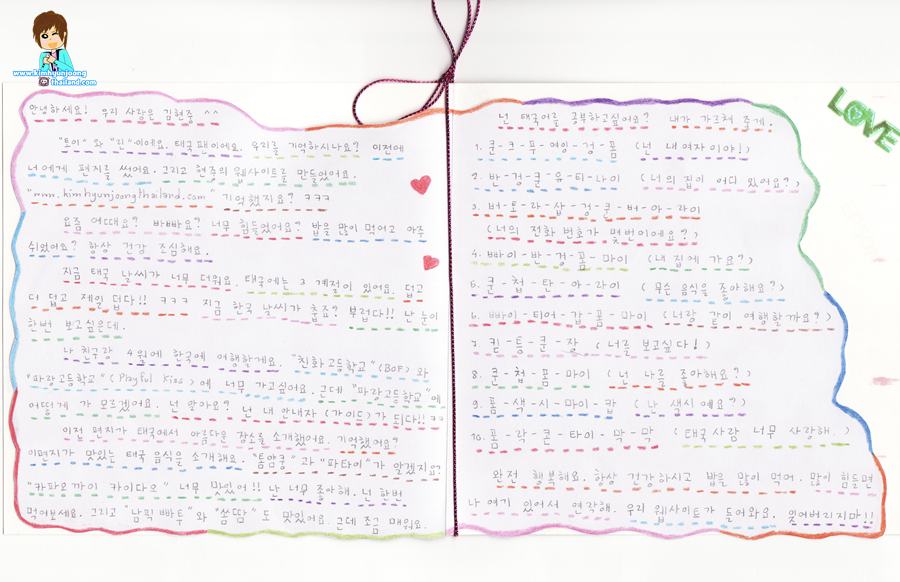 www.kimhyunjoong
thailand.com
안녕하세요! 우리 사랑은 김현중 ^^
"토이" 와 "린"이에요. 태국 팬이에요. 우리를 기억하시나요? 이전에
너에게 편지를 썼어요. 그리고 현중의 웹사이트를 만들었어요.
"www.kimhyunjoongthailand.com" 기억했지요? ㅋㅋㅋ
요즘 어때요? 바빠요? 너무 힘들었어요? 밥을 많이 먹어고 아주
쉬었어요? 항상 건강 조심해요.
지금 태국 날씨가 너무 더워요. 태국에는 3 계절이 있어요. 덥고
더 덥고 제일 덥다!! ㅋㅋㅋ 지금 한국 날씨가 춥죠? 부럽다!! 난 눈이
한번 보고싶은데.
나 친구랑 4월에 한국에 여행할게요. "친화고등학교" (BOF) 와
"파랑고등학교" (Playful Kiss) 에 너무 가고싶어요. 근데 "파랑고등학교"
어떻게 가 모르겠어요. 넌 알아요? 넌 내 안내자 (가이드)가 되다!! ㅋㅋ
이전 편지가 태국에서 아름다운 장소를 소개했어요. 기억했어요?
이편지가 맛있는 태국 음식을 소개해요. "톰얌쿵" 과 "파타이" 가 알겠지요?
"카파오까이 카이다오" 너무 맛있어!! 난 너무 좋아해. 넌 한번
먹어보세요. 그리고 "남픽빠투"와 "쏨땀" 도 맛있어요. 그데 조금 매워요.
LOVE
넌 태국어를 공부하고싶어요? 내가 가르쳐 줄게.
1. 쿤-크-푸-여잉-컹-폼 (넌 내 여자이야!)
2. 반-컹-쿤-유-티-나이 (너의 집이 어디 있어요?)
3. 버-토-라-삽-컹-쿤-버-아-라이
(너의 전화 번호가 몇번이에요?)
4. 빠이-반-컹-폼-마이 (내 집에 가요?)
5. 쿤-첩-탄-아-라이 (무슨 음식을 좋아해요?)
6. 빠이-티어-갑-폼-마이 (너랑 같이 여행할까요?)
7. 킫-틍-쿤-잘 (너를 보고싶다!)
8. 쿤-첩-폼-마이 (넌 나를 좋아해요?)
9. 폼-섹-시-마이-캅 (난 섹시예요?)
10. 폼-락-쿤-타이-막-막 (태국사람 너무 사랑해.)
완전 행복해요. 항상 건가하시고 밥을 많이 먹어. 많이 힘들면
나 여기 있어서 연락해. 우리 웹사이트가 들어와요. 잊어버리지마!!